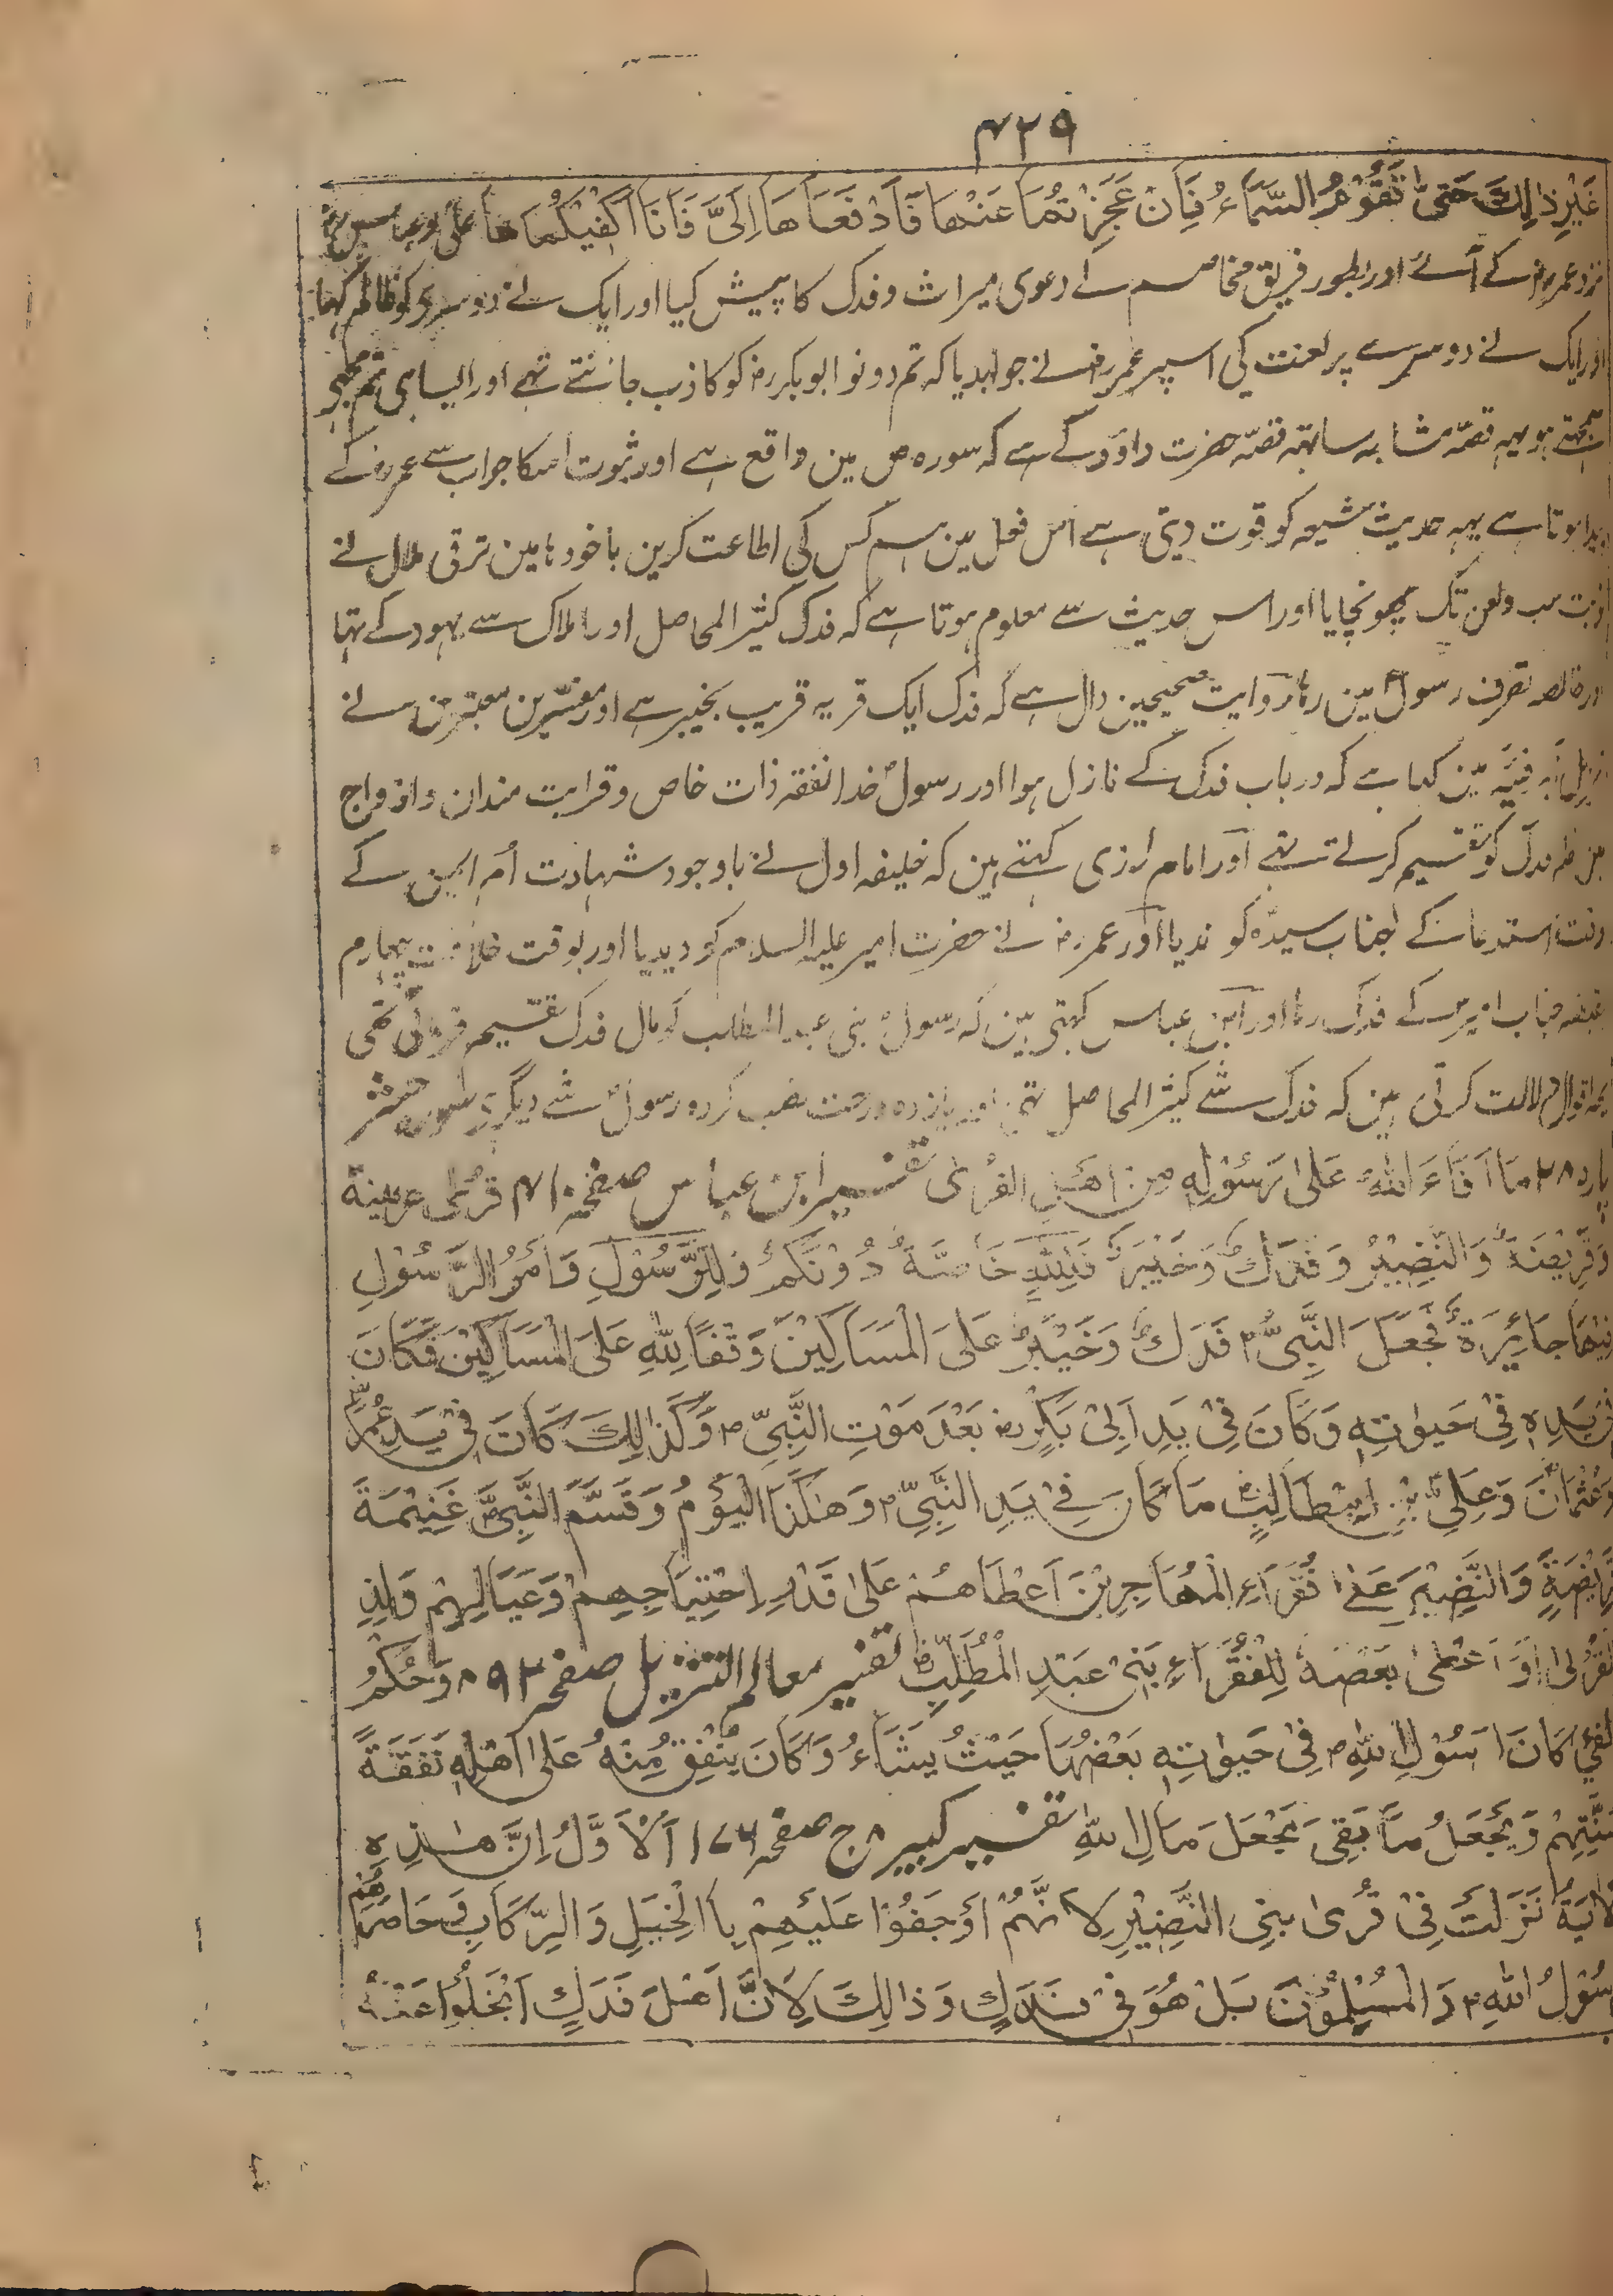 ۴۲۹
غَيْرِ ذٰلِكَ حَتّٰى تَقُوْمَ السَّمَآءُ فَاِنْ عَجَزْتُمَا عَنْهَا فَادْفَعَاهَا اِلَيَّ فَاَنَا اَكْفِيْكُمَاهَا علی وعباس
نزد عمررض کے آئے اور بطور فریق مخاصم کے دعوی میراث و فدک کا پیش کیا اور ایک نے دوسرے کو ظالم کہا
اور ایک نے دوسرے پر لعنت کی اسپر عمررض نے جوابدیا کہ تم دونو ابوبکررض کو کاذب جانتے تہے اور ایسا ہی تم مجہے
سمجہتے ہو یہہ قصّہ مشابہ ساتہہ قصّہ حضرت داوٗد کے ہے کہ سورہ ص مین واقع ہے اور ثبوت اسکا جواب سے عمررض کے
پیدا ہوتا ہے یہہ حدیث شیعہ کو قوت دیتی ہے اس فعل مین ہم کس کی اطاعت کرین با خودہا مین ترقی ملال نے
نوبت سب ولعن تک پہونچایا اور اس حدیث سے معلوم ہوتا ہے کہ فدک کثیر المحاصل اور املاک سے یہود کے تہا
اور خالصہ تصرف رسولؐ مین رہا روایت صحیحین دال ہے کہ فدک ایک قریہ قریب بخیبر ہے اور مفسّرین معتبرین نے
مین کہا ہے کہ درباب فدک کے نازل ہوا اور رسولؐ خدا نفقہ ذات خاص وقرابت مندان وازواج
فدک کو تقسیم کرتے تہے اور امام رازی کہتے ہین کہ خلیفہ اول نے باوجود شہادت اُم ایمن کے
وقت استدعا کے جناب سیدہؑ کو ندیا اور عمررض نے حضرت امیر علیہ السلام کو دیدیا اور بوقت خلافت چہارم
قبضہ جناب امیر کے فدک رہا اور ابن عباس کہتی ہین کہ رسولؐ بنی عبد المطلب کو مال فدک تقسیم فرمائی تھی
یہہ اقوال دلالت کرتی ہین کہ فدک شے کثیر المحاصل تہی اور یازدہ درخت نصب کردہ رسولؐ شے دیگر سورہ حشر
پارہ ۲۸ مَا اَفَاءَ اللهُ عَلٰى رَسُوْلِهٖ مِنْ اَهْلِ الْقُرٰى تفسیر ابن عباس صفحہ ۴۱۰ قرٰى عرینة
وَقُرَيْضَةَ وَالنَّضِيْرُ وَفَدَكُ وَخَيْبَرُ فَلِلّٰهِ خَاصَّةً دُوْنَكُمْ وَلِلرَّسُوْلِ وَاَمْرُ الرَّسُوْلِ
فِيْهَا جَائِزَةٌ فَجَعَلَ النَّبِيُّؐ فَدَكَ وَخَيْبَرَ عَلَى الْمَسَاكِيْنَ وَقْفًا لِلّٰهِ عَلَى الْمَسَاكِيْنَ فَكَانَ
فِیْ يَدِهٖ فِيْ حَيٰوتِهٖ وَكَانَ فِيْ يَدِ اَبِيْ بَكْرٍرض بَعْدَ مَوْتِ النَّبِيِّؐ وَكَذٰلِكَ كَانَ فِيْ يَدِ عُمَرَرض
وَعُثْمَانَ وَعَلِيِّ بْنِ اَبِيْطَالِبٍ مَا كَانَ فِيْ يَدِ النَّبِيِّؐ وَهٰكَذَا الْيَوْمُ وَقَسَّمَ النَّبِيُّؐ غَنِيْمَةَ
قُرَيْضَةَ وَالنَّضِيْرِ عَلٰى فُقَرَاءِ الْمُهَاجِرِيْنَ اَعْطَاهُمْ عَلٰى قَدْرِ اِحْتِيَاجِهِمْ وَعَيَالِهِمْ وَلِذِي
الْقُرْبٰى اَوْ اَعْطٰى بَعْضَهٗ لِلْفُقَرَاءِ بَنِيْ عَبْدِ الْمُطَّلِبِ تفسیر معالم التنزیل صفحہ ۸۹۳ وَحُكْمُ
الْفَيْءِ كَانَ رَسُوْلُ اللهِؐ فِيْ حَيٰوتِهٖ بَعْضُهَا حَيْثُ يَشَاءُ وَكَانَ يُنْفِقُ مِنْهُ عَلٰى اَهْلِهٖ نَفَقَةً
سَنَتِهِمْ وَيَجْعَلُ مَا بَقِيَ يَجْعَلَ مَالِ اللهِ تفسیر کبیر ۸ ج صفحہ ۱۷۶ اَلْاَوَّلُ اِنَّ هٰذِهِ
الْاٰيَةُ نَزَلَتْ فِيْ قُرٰى بَنِي النَّضِيْرِ لِاَنَّهُمْ اَوْجَفُوْا عَلَيْهِمْ بِالْخَيْلِ وَالرِّكَابِ وَحَاصَرَهُمْ
رَسُوْلُ اللهِؐ وَالْمُسْلِمُوْنَ بَلْ هُوَ فِيْ فَدَكٍ وَذَالِكَ لِاَنَّ اَهْلَ فَدَكٍ اَنْجَلُوْا عَنْهُ